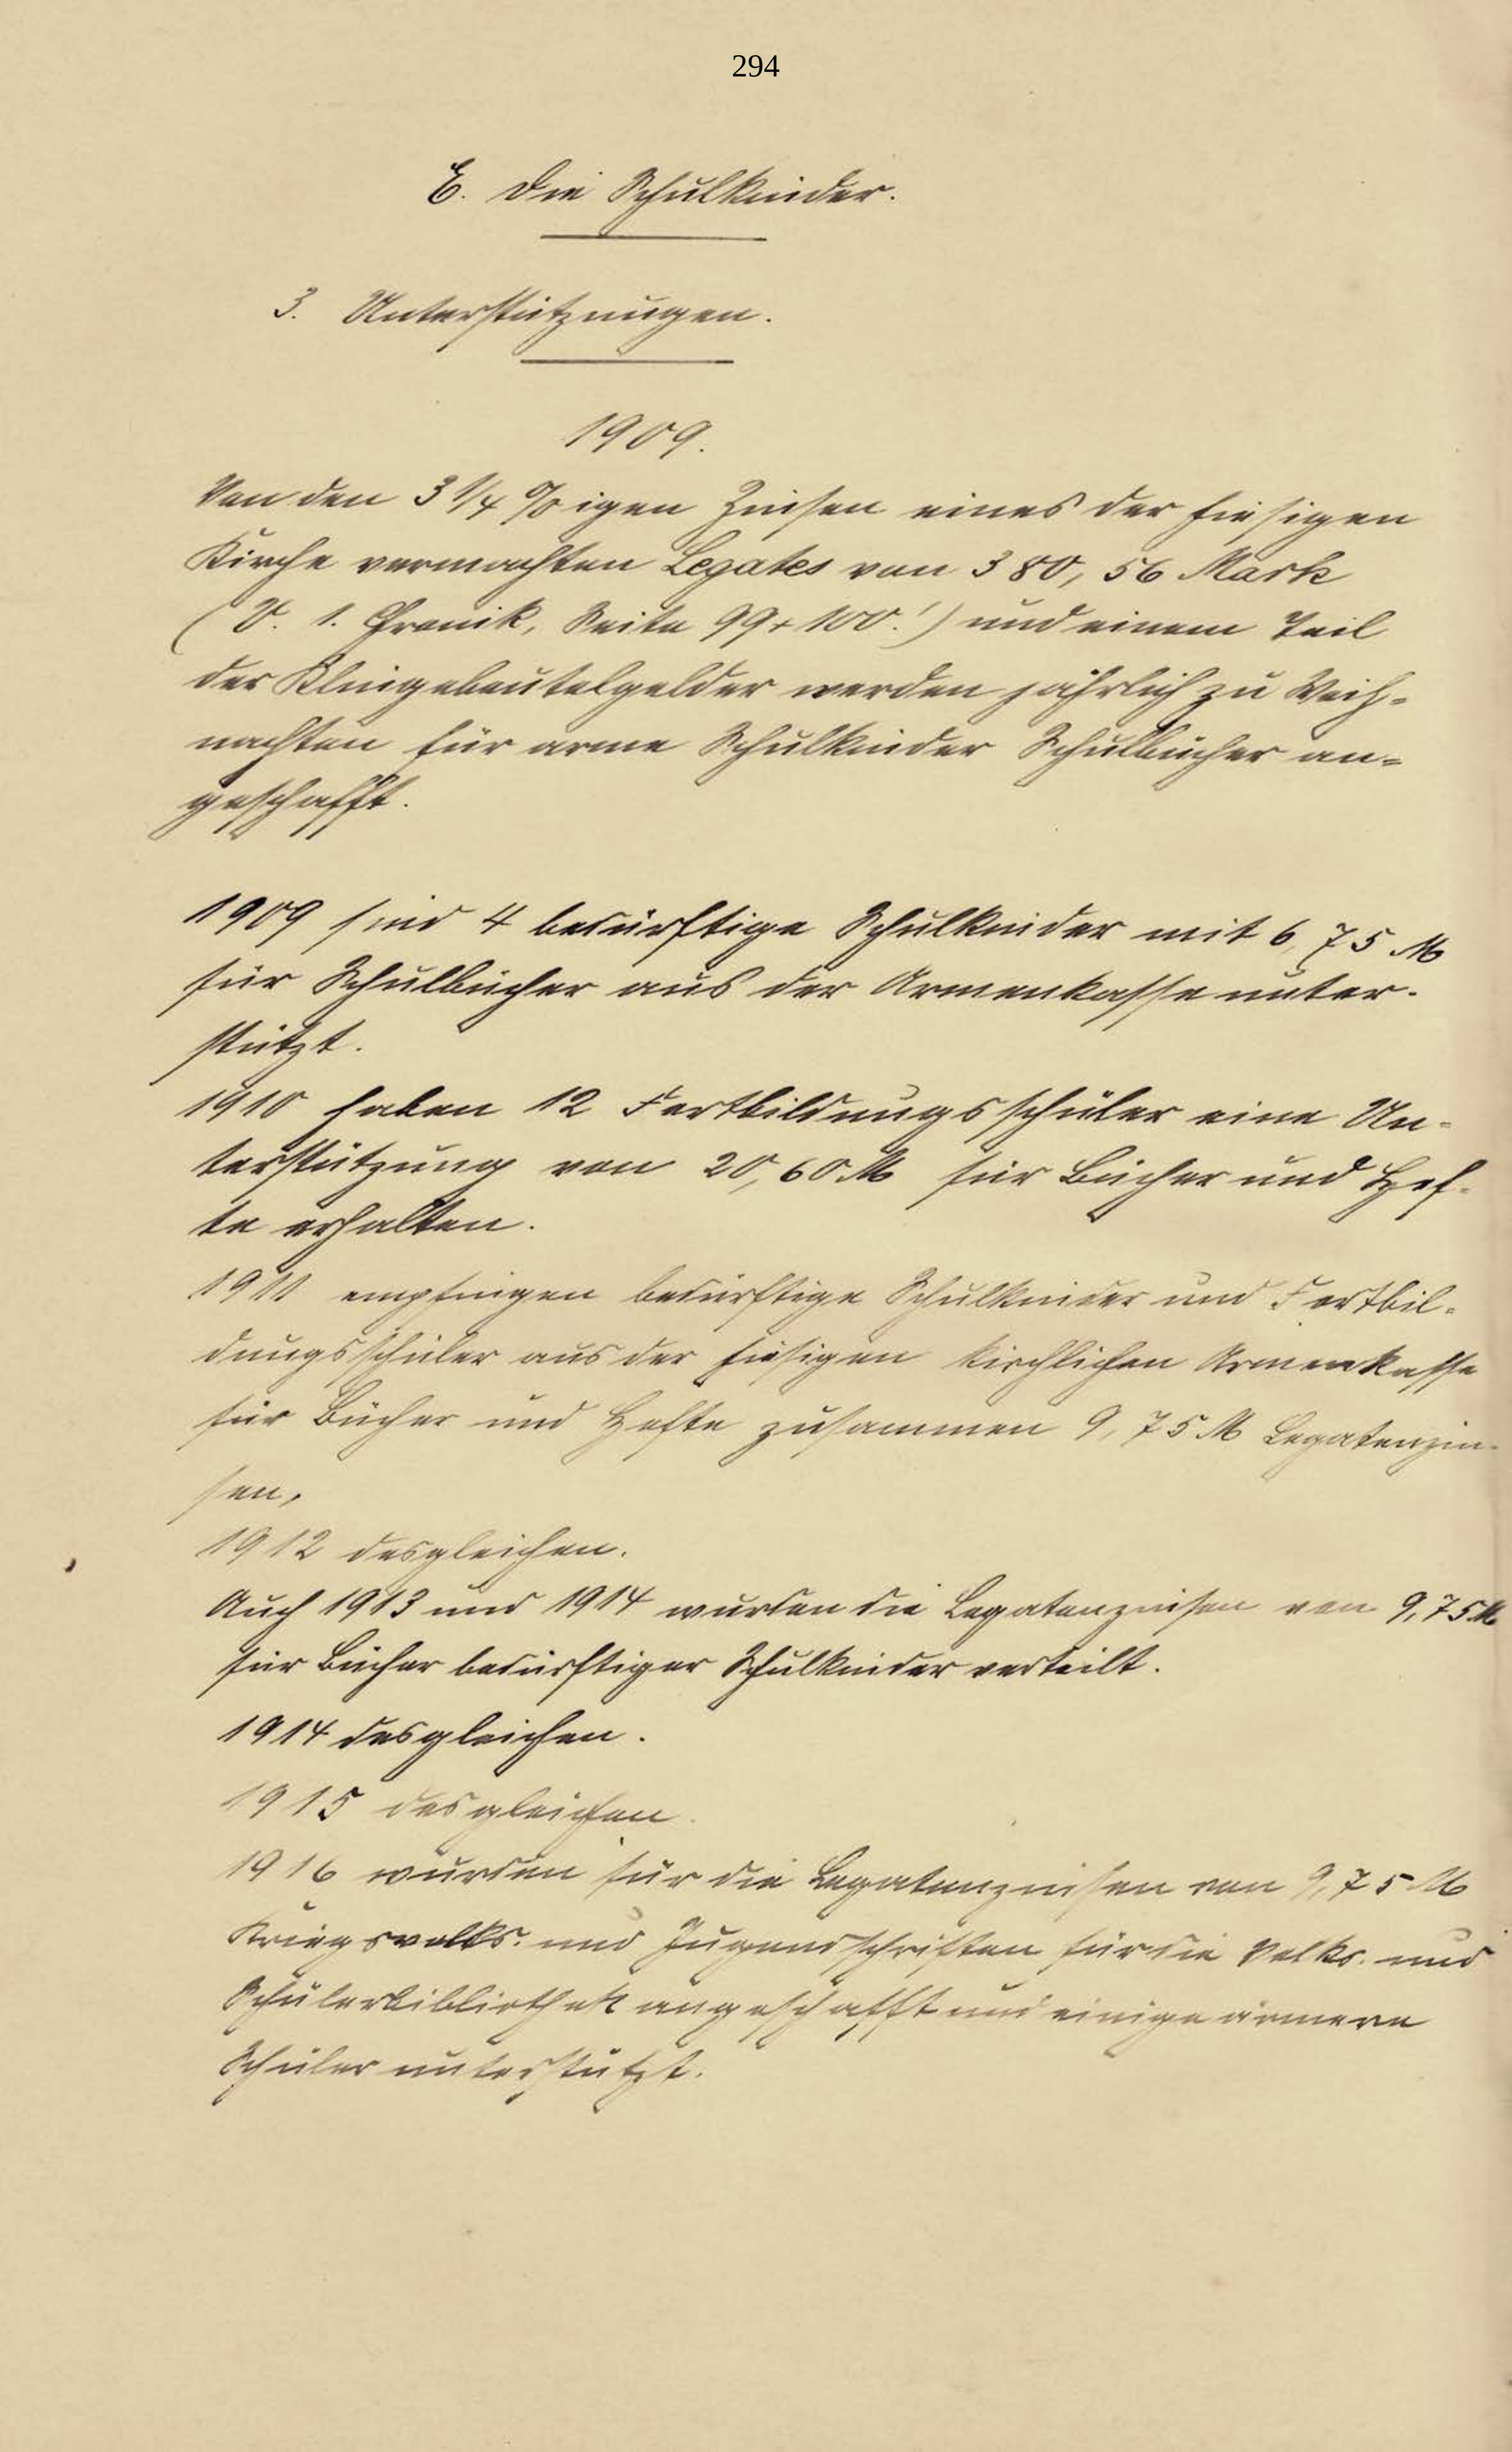 294
E. Die Schulkinder.
3. Unterstützungen.
1909.
Von den 3 1/4 %igen Zinsen eines der hiesigen
Kirche vermachten Legates von 380,56 Mark
(V. 1. Chronik, Seite 99 + 100!) und einem Teil
der Klingebeutelgelder werden jährlich zu Weih-
nachten für arme Schulkinder Schulbücher an-
geschafft.
1909 sind 4 bedürftige Schulkinder mit 6,75 M
für Schulbücher aus der Armenkasse unter-
stützt.
1910 haben 12 Fortbildungsschüler eine Un-
terstützung von 20,60 M für Bücher und Hef-
te erhalten.
1911 empfingen bedürftige Schulkinder und Fortbil-
dungsschüler aus der hiesigen kirchlichen Armenkasse
für Bücher und Hefte zusammen 9,75 M Legatenzin-
sen.
1912 desgleichen.
Auch 1913 und 1914 wurden die Legatenzinsen von 9,75 M
für Bücher bedürftiger Schulkinder verteilt.
1914 desgleichen.
1915 desgleichen.
1916 wurden für die Legatenzinsen von 9,75 M
Kriegsvolks- und Jugendschriften für die Volks- und
Schülerbibliothek angeschafft und einige ärmere
Schüler unterstützt.